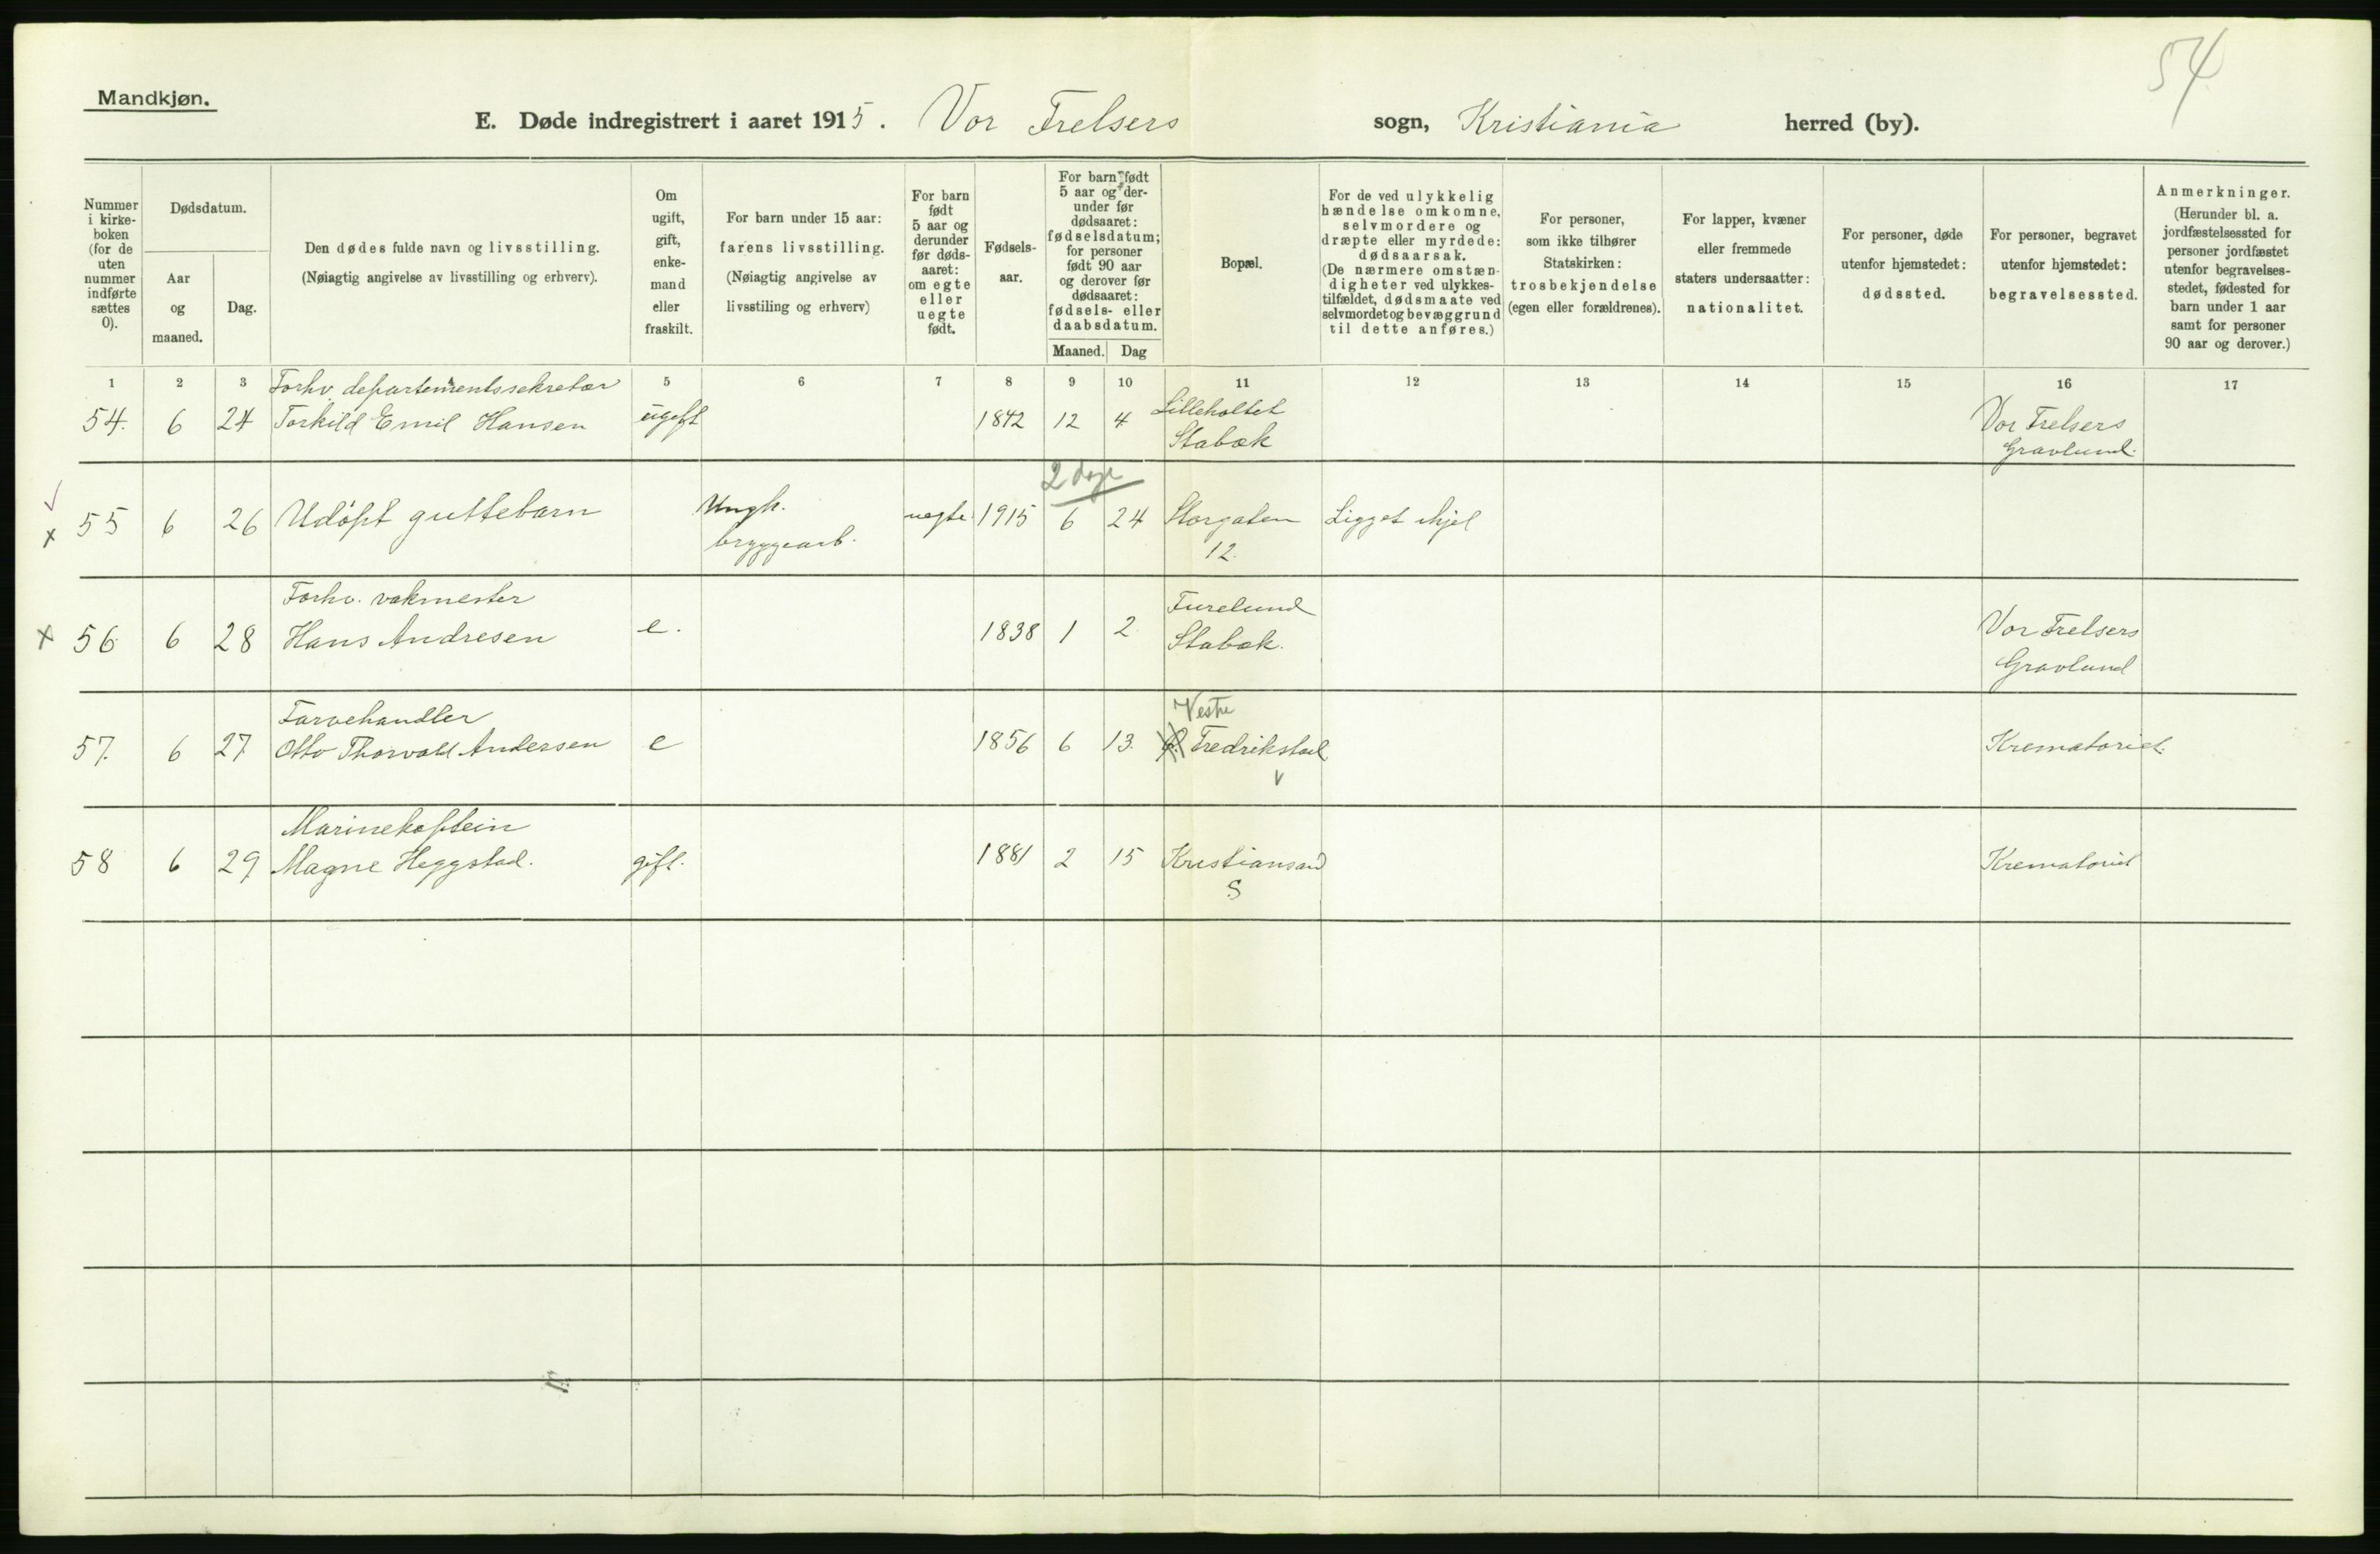 54
Mandkjøn.
E. Døde indregistrert i aaret 1915. Vor Frelsers sogn, Kristiania herred (by).
Nummer i kirke- boken (for de uten nummer indførte sættes 0).
Dødsdatum.
Aar og maaned.
Dag.
Den dødes fulde navn og livsstilling.
(Nøiagtig angivelse av livsstilling og erhverv).
Om ugift, gift, enke- mand eller fraskilt.
For barn under 15 aar: farens livsstilling.
(Nøiagtig angivelse av livsstiling og erhverv)
For barn født 5 aar og derunder før døds- aaret: om egte eller uegte født.
Fødsels- aar.
For barn født 5 aar og der- under før dødsaaret: fødselsdatum; for personer født 90 aar og derover før dødsaaret: fødsels- eller daabsdatum.
Maaned. Dag
Bopæl.
For de ved ulykkelig hændelse omkomne, selvmordere og dræpte eller myrdede: dødsaarsak.
(De nærmere omstæn- digheter ved ulykkes- tilfældet, dødsmaate ved selvmordet og bevæggrund til dette anføres.)
For personer, som ikke tilhører Statskirken: trosbekjendelse (egen eller forældrenes).
For lapper, kvæner eller fremmede staters undersaatter: nationalitet.
For personer, døde utenfor hjemstedet: dødssted.
For personer, begravet utenfor hjemstedet: begravelsessted.
Anmerkninger.
(Herunder bl. a. jordfæstelsessted for personer jordfæstet utenfor begravelses- stedet, fødested for barn under 1 aar samt for personer 90 aar og derover.)
1 2 3 5 6 7 8 9 10 11 12 13 14 15 16 17
Forhv. departementssekretær
54. 6 24 Torkild Emil Hansen ugift 1842 12 4 Lilleholtet Stabæk Vor Frelsers Gravlund.
2 dage
55 6 26 Udøpt guttebarn Ungk. bryggearb. uegte 1915 6 24 Storgaten 12. Ligget ihjel
Forhv. vakmester
56 6 28 Hans Andresen e. 1838 1 2. Furelund Stabæk. Vor Frelsers Gravlund
Farvehandler
Vestre
57. 6 27 Otto Thorvald Andersen e 1856 6 13. Fredrikstad Krematoriet.
Marinekaptein
58 6 29 Magne Heggstad. gift. 1881 2 15 Kristiansand S Krematoriet